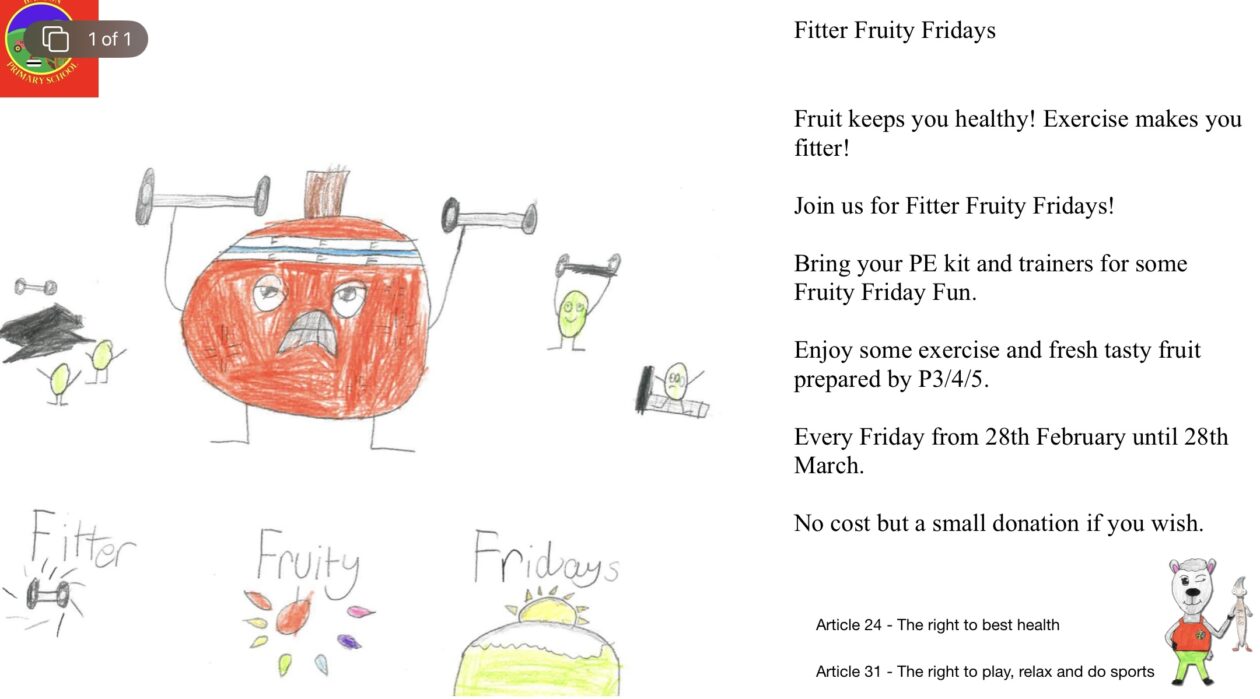 1 of 1
PRIMARY SCHOOL
Fitter
Fruity
Fridays
Fitter Fruity Fridays
Fruit keeps you healthy! Exercise makes you
fitter!
Join us for Fitter Fruity Fridays!
Bring your PE kit and trainers for some
Fruity Friday Fun.
Enjoy some exercise and fresh tasty fruit
prepared by P3/4/5.
Every Friday from 28th February until 28th
March.
No cost but a small donation if you wish.
Article 24 - The right to best health
Article 31 - The right to play, relax and do sports